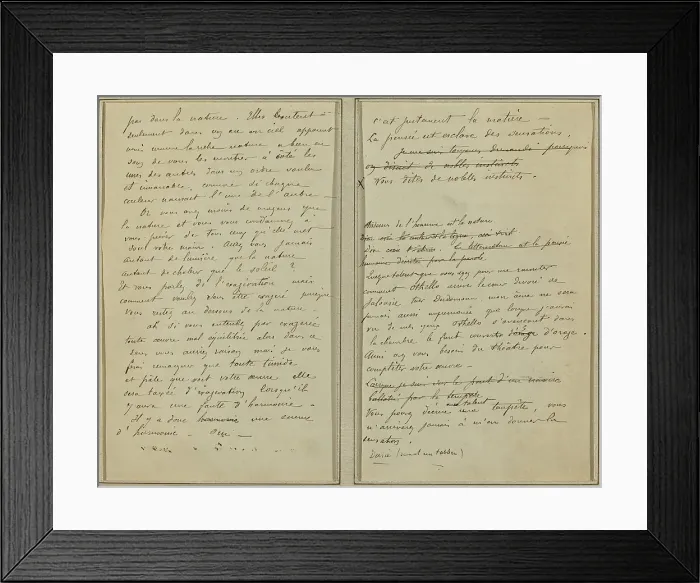 pas dans la nature. Elles existent
seulement dans un arc en ciel
vous montre la riche nature a bien eu
soin de vous les montrer à côté les
unes des autres dans un ordre voulu
et immuable, comme si chaque
couleur naissait l'une de l'autre -
Or vous avez moins de moyens que
la nature et vous vous condamnez à
vous priver de tous ceux qu'elle met
sous votre main. Aurez-vous jamais
autant de lumière que la nature
autant de chaleur que le soleil?
Et vous parlez de l'exagération mais
comment voulez vous être exagéré puisque
vous restez au dessous de la nature.
ah si vous entendez par exagérée
toute œuvre mal équilibrée alors dans ce
sens vous auriez raison mais je vous
ferai remarquer que toute timide
et pâle que soit votre œuvre elle
sera taxée d'exagération lorsqu'il
y aura une faute d'harmonie -
Il y a donc harmonie une science
d'harmonie. Oui -
c'est justement la matière -
La pensée est esclave des sensations.
Je me suis toujours demandé pourquoi
on disait de nobles instincts
X Vous dites de nobles instincts.
dessus de l'homme est la nature
La littérature est la pensée
humaine décrite par la parole.
Quelque talent que vous ayez pour me raconter
comment Othello arrive le cœur dévoré de
jalousie tuer Desdémone mon âme ne sera
jamais aussi impressionnée que lorsque j'aurai
vu de mes yeux Othello s'avançant dans
la chambre le front couvert d'orage.
Aussi avez vous besoin du théâtre pour
compléter votre œuvre -
Vous pouvez décrire avec talent une tempête, vous
n'arriverez jamais à m'en donner la
sensation.